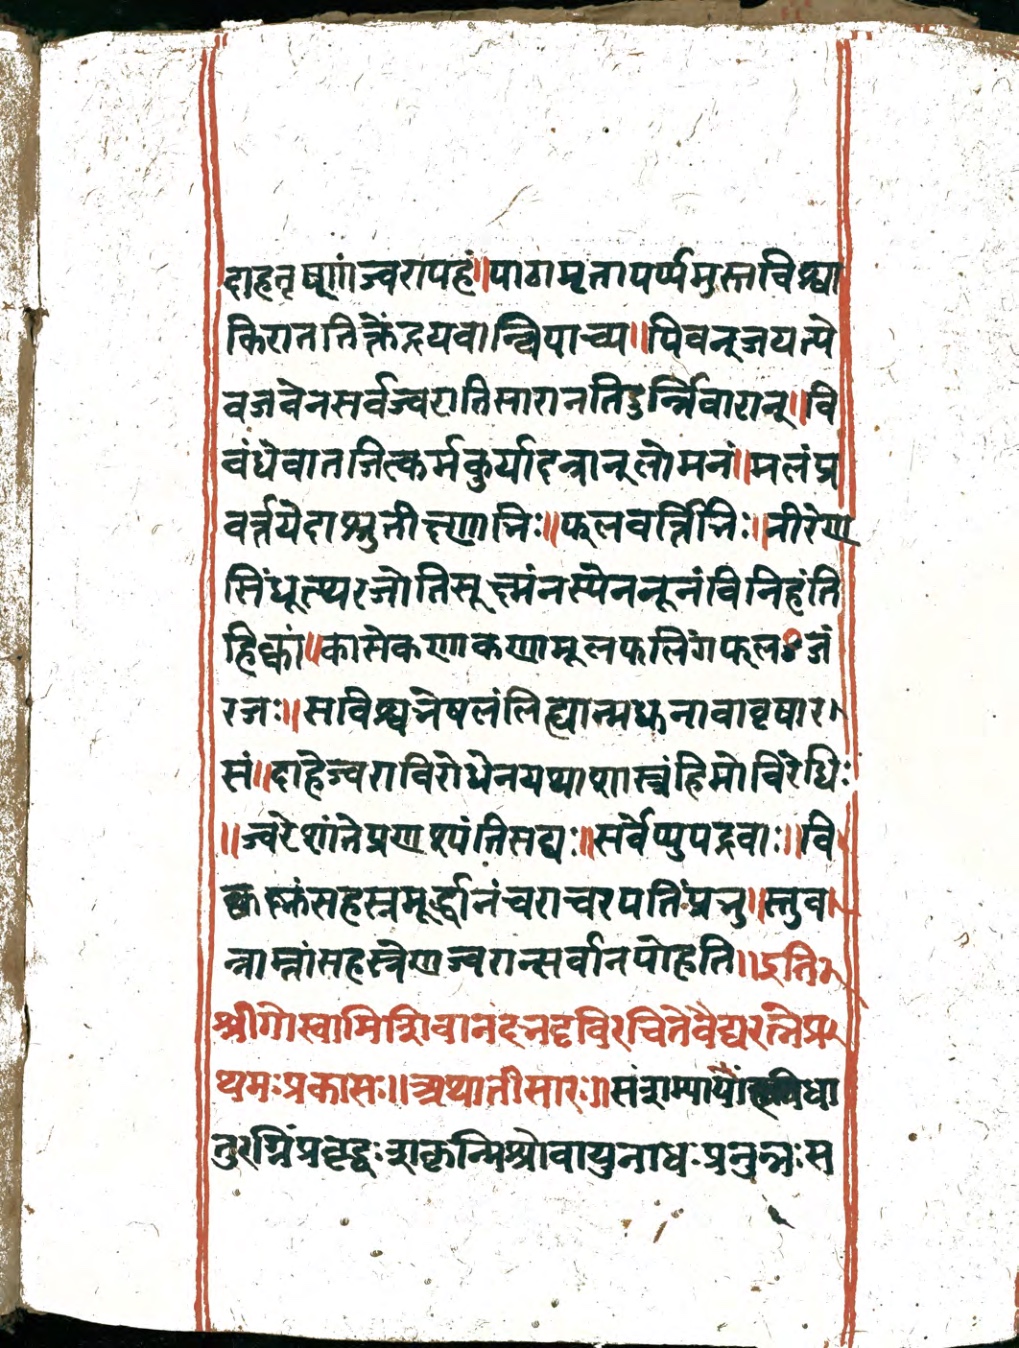 दाहतृष्णांज्वरापहं॥पाठामृतापर्प्पमुस्तविश्वा
किराततिक्तेंद्रयवान्विपाच्य॥पिवन्जयत्ये
वजवेनसर्वज्वरातिसारानतिदुर्न्निवारान्॥वि
वंधेवातजित्कर्मकुर्यादत्रानूलोमनं॥मलंप्र
वर्त्तयेदाश्रुतीक्ष्णाभिः॥फलवर्त्तिभिः॥नीरेण
सिंधूत्थरजोतिसूक्ष्मंनस्येननूनंविनिहंति
हिक्कां॥कासेकणाकणामूलकलिंगफलजं
रजः॥सविश्वभेषलंलिह्यान्मधुनावावृषार
सं॥दाहेज्वराविरोधेनयथाशास्त्रंहिमोविरेधिः
॥ज्वरेशांतेप्रणश्यंतिसद्यः॥सर्वेप्युपद्रवाः॥वि
ष्णुंसहस्रमूर्द्धानंचराचरपतिंप्रभु॥स्तुव
न्नाम्नांसहस्रेणज्वरान्सर्वानपोहति॥इति
श्रीगोस्वामिशिवानंदभट्टविरचितेवैद्यरत्नेप्र
थमःप्रकासः॥अथातीसारः॥संशम्यापां धा
तुरग्निंप्रवृद्धःशकृन्मिश्रोवायुनाधःप्रनुन्नःस